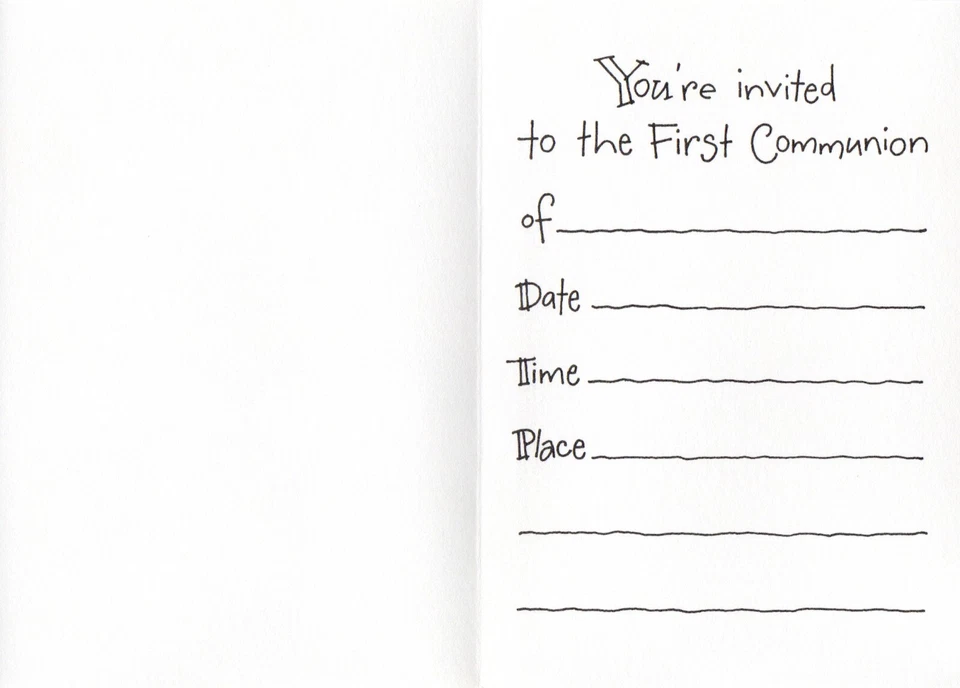 You're invited
to the First Communion
of
Date
Time
Place